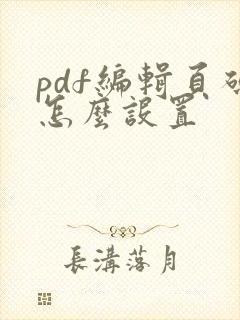 pdf編輯頁
怎麼設置
長溝落月